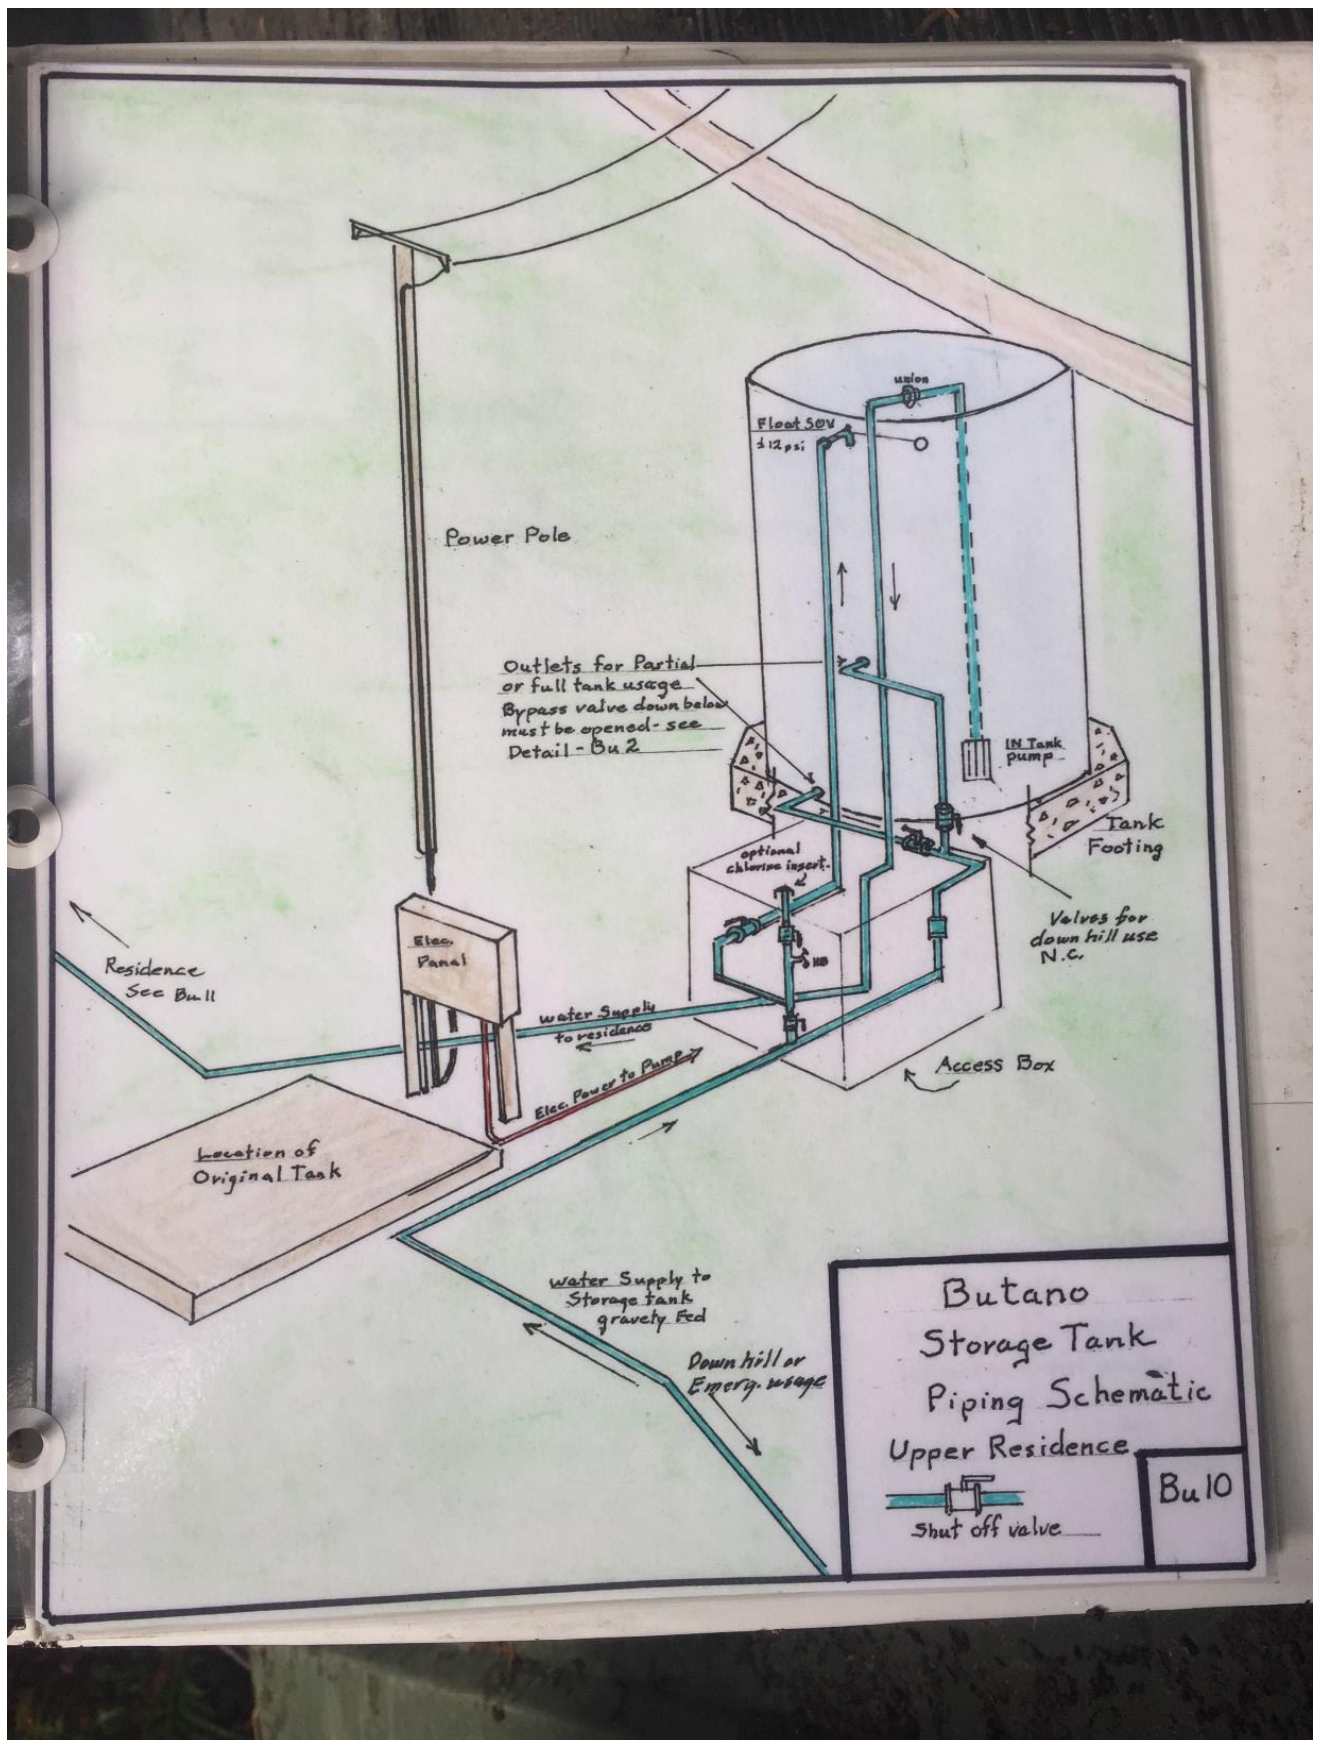 union
Float SOV
±12 psi
Power Pole
Outlets for Partial
or full tank usage
Bypass valve down below
must be opened - see
Detail - Bu 2
IN Tank
pump
Tank
Footing
optional
chlorine insert.
Valves for
down hill use
N.C.
Elec.
Panal
Residence
See Bu 11
HB
water Supply
to residence
Elec. Power to Pump
Access Box
Location of
Original Tank
water Supply to
Storage tank
gravety Fed
Down hill or
Emerg. usage
Butano
Storage Tank
Piping Schematic
Upper Residence
Shut off valve
Bu 10